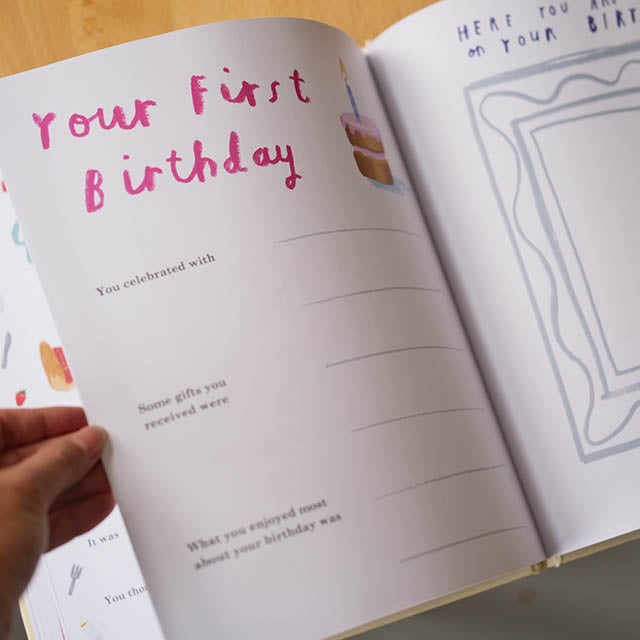 Your First
Birthday
You celebrated with
Some gifts you
received were
What you enjoyed most
about your birthday was
HERE YOU
on YOUR
It was
You